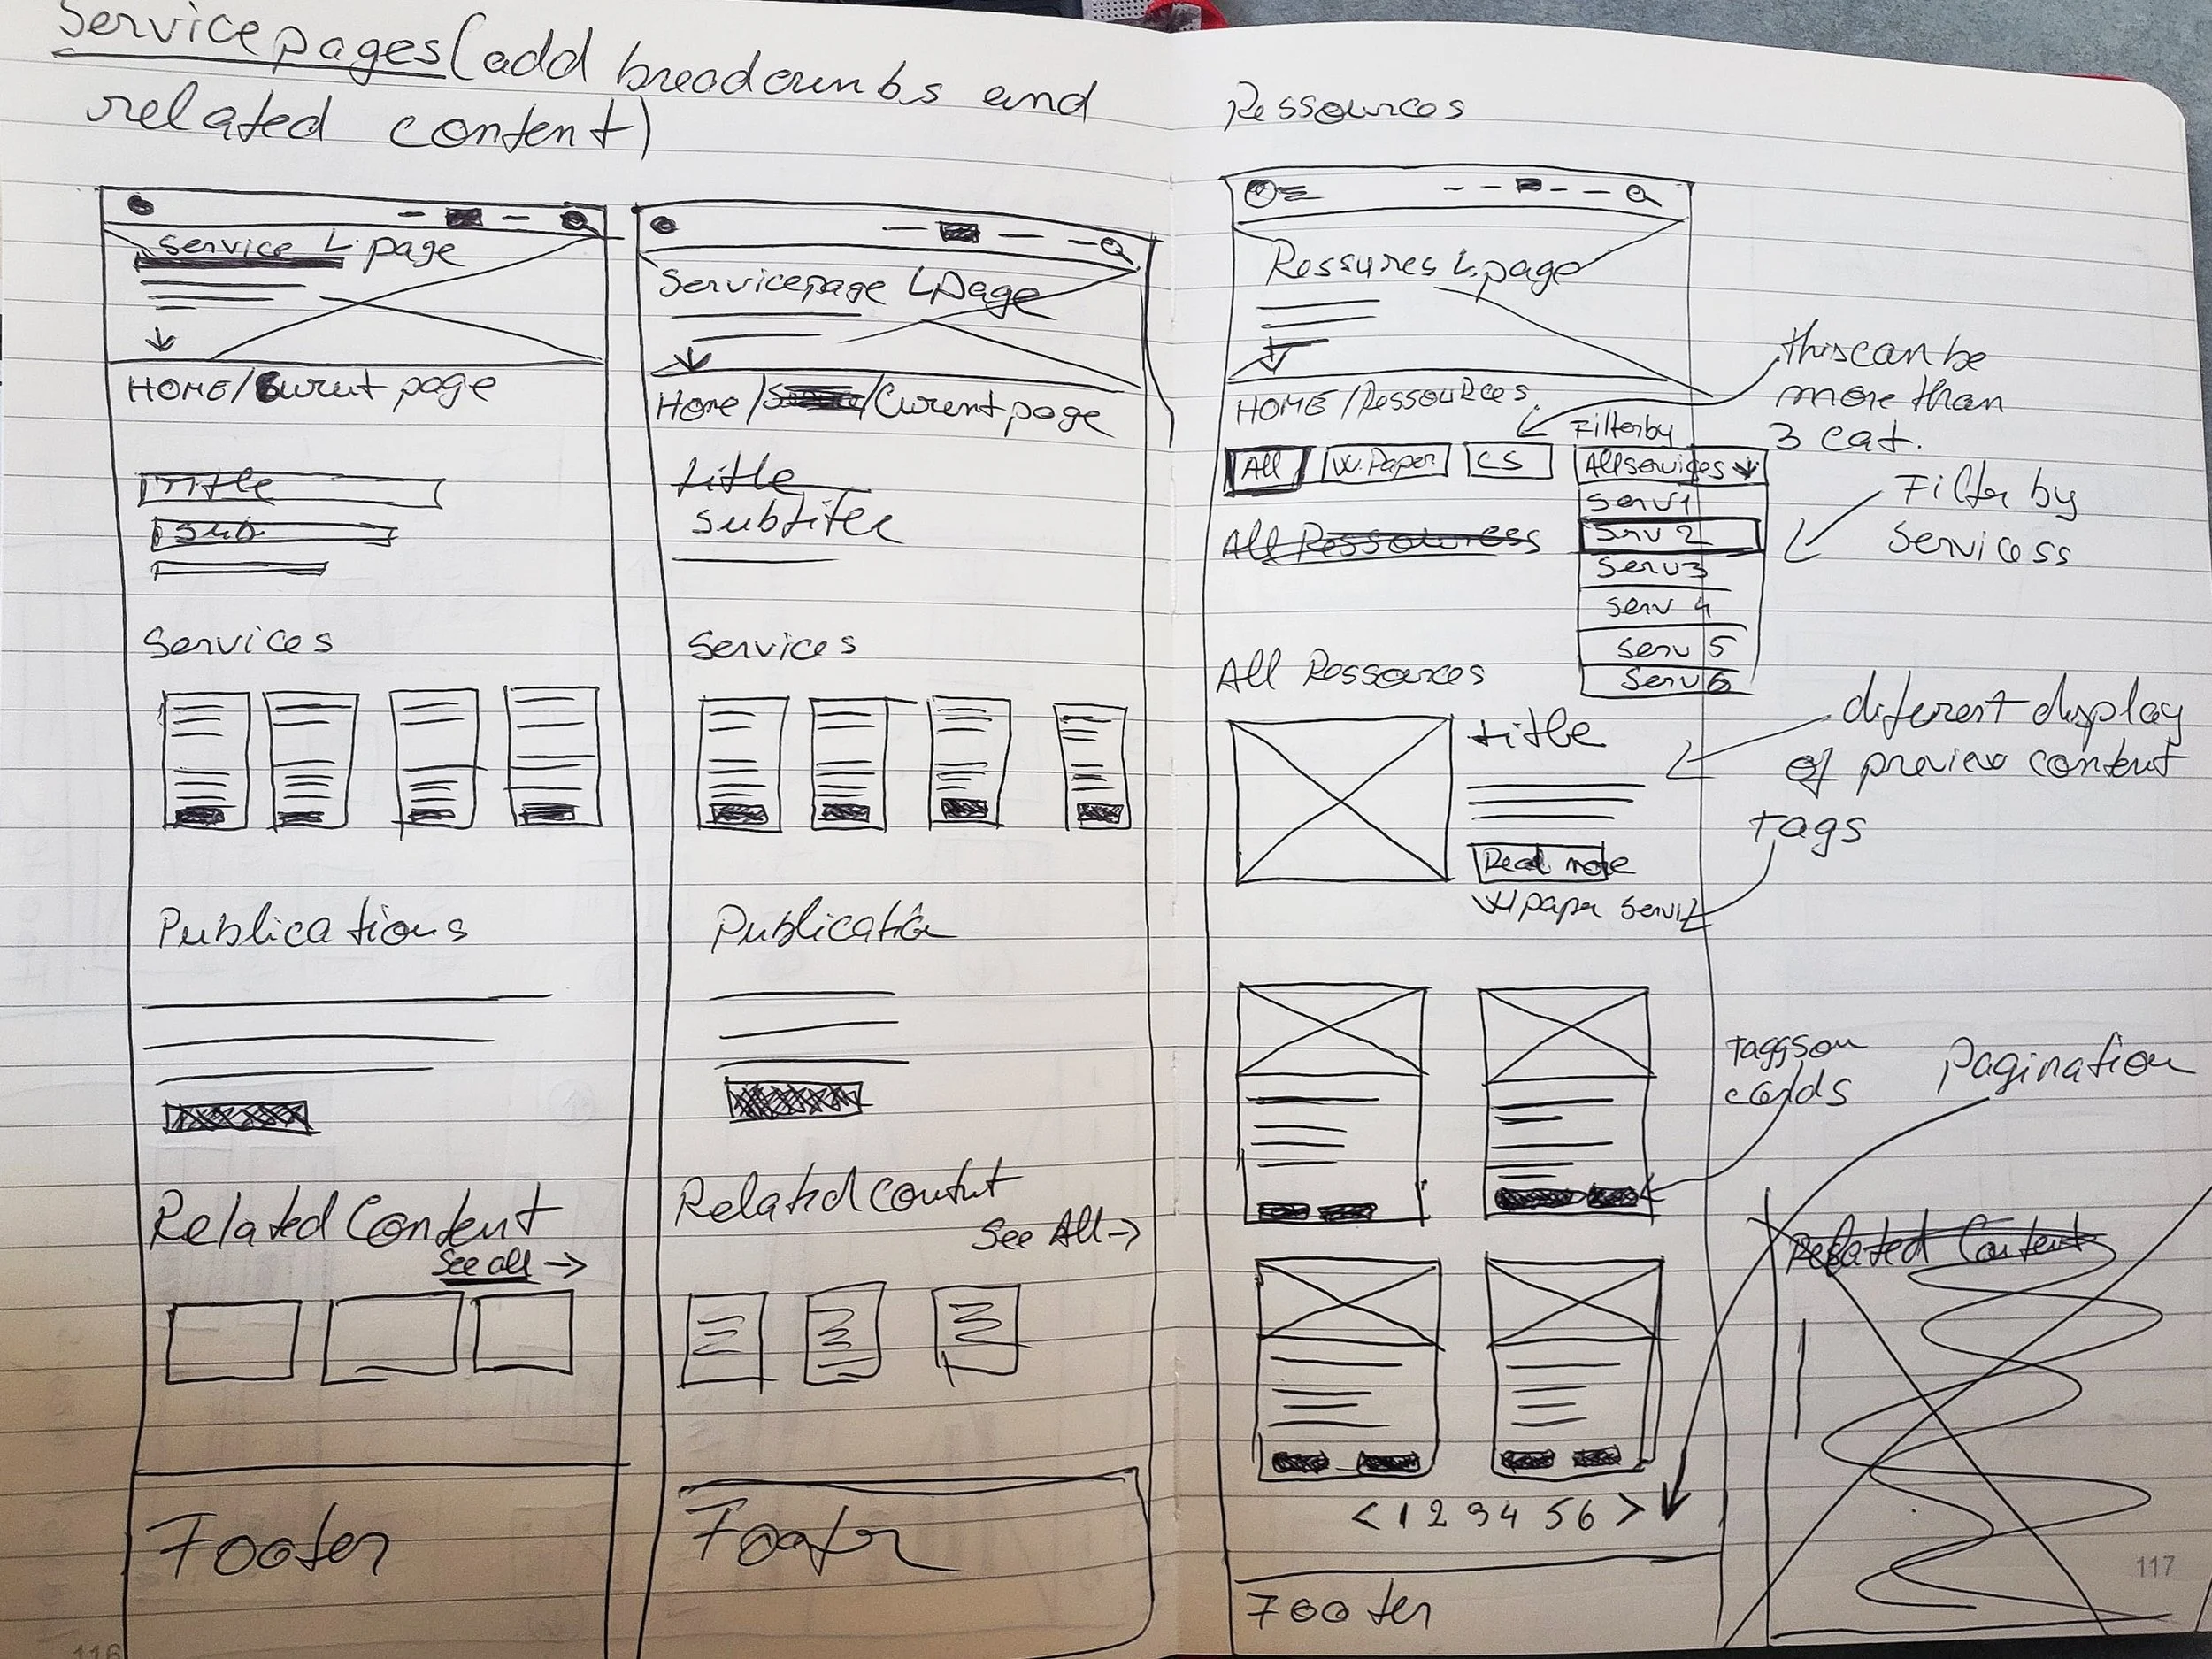 Service pages (add breadcrumbs and
related content)
Service L. page
HOME/Curent page
Title
Sub
Services
Publications
Related Content
See all →
Footer
116
Servicepage L page
Home / /Curent page
title
subtitle
Services
Publication
Related content
See All →
Footer
Ressources
Ressures L. page
HOME /Ressources
this can be
more than
3 cat.
Filter by
All
W. Paper
CS
All services ↓
Serv 1
Serv 2
Serv 3
Serv 4
Serv 5
Serv 6
Filter by
Servicess
All Ressources
All Ressources
title
diferent display
of preview content
Read more
W paper Serv 2
tags
taggs on
cards
Pagination
Related Content
< 1 2 3 4 5 6 >
Footer
117